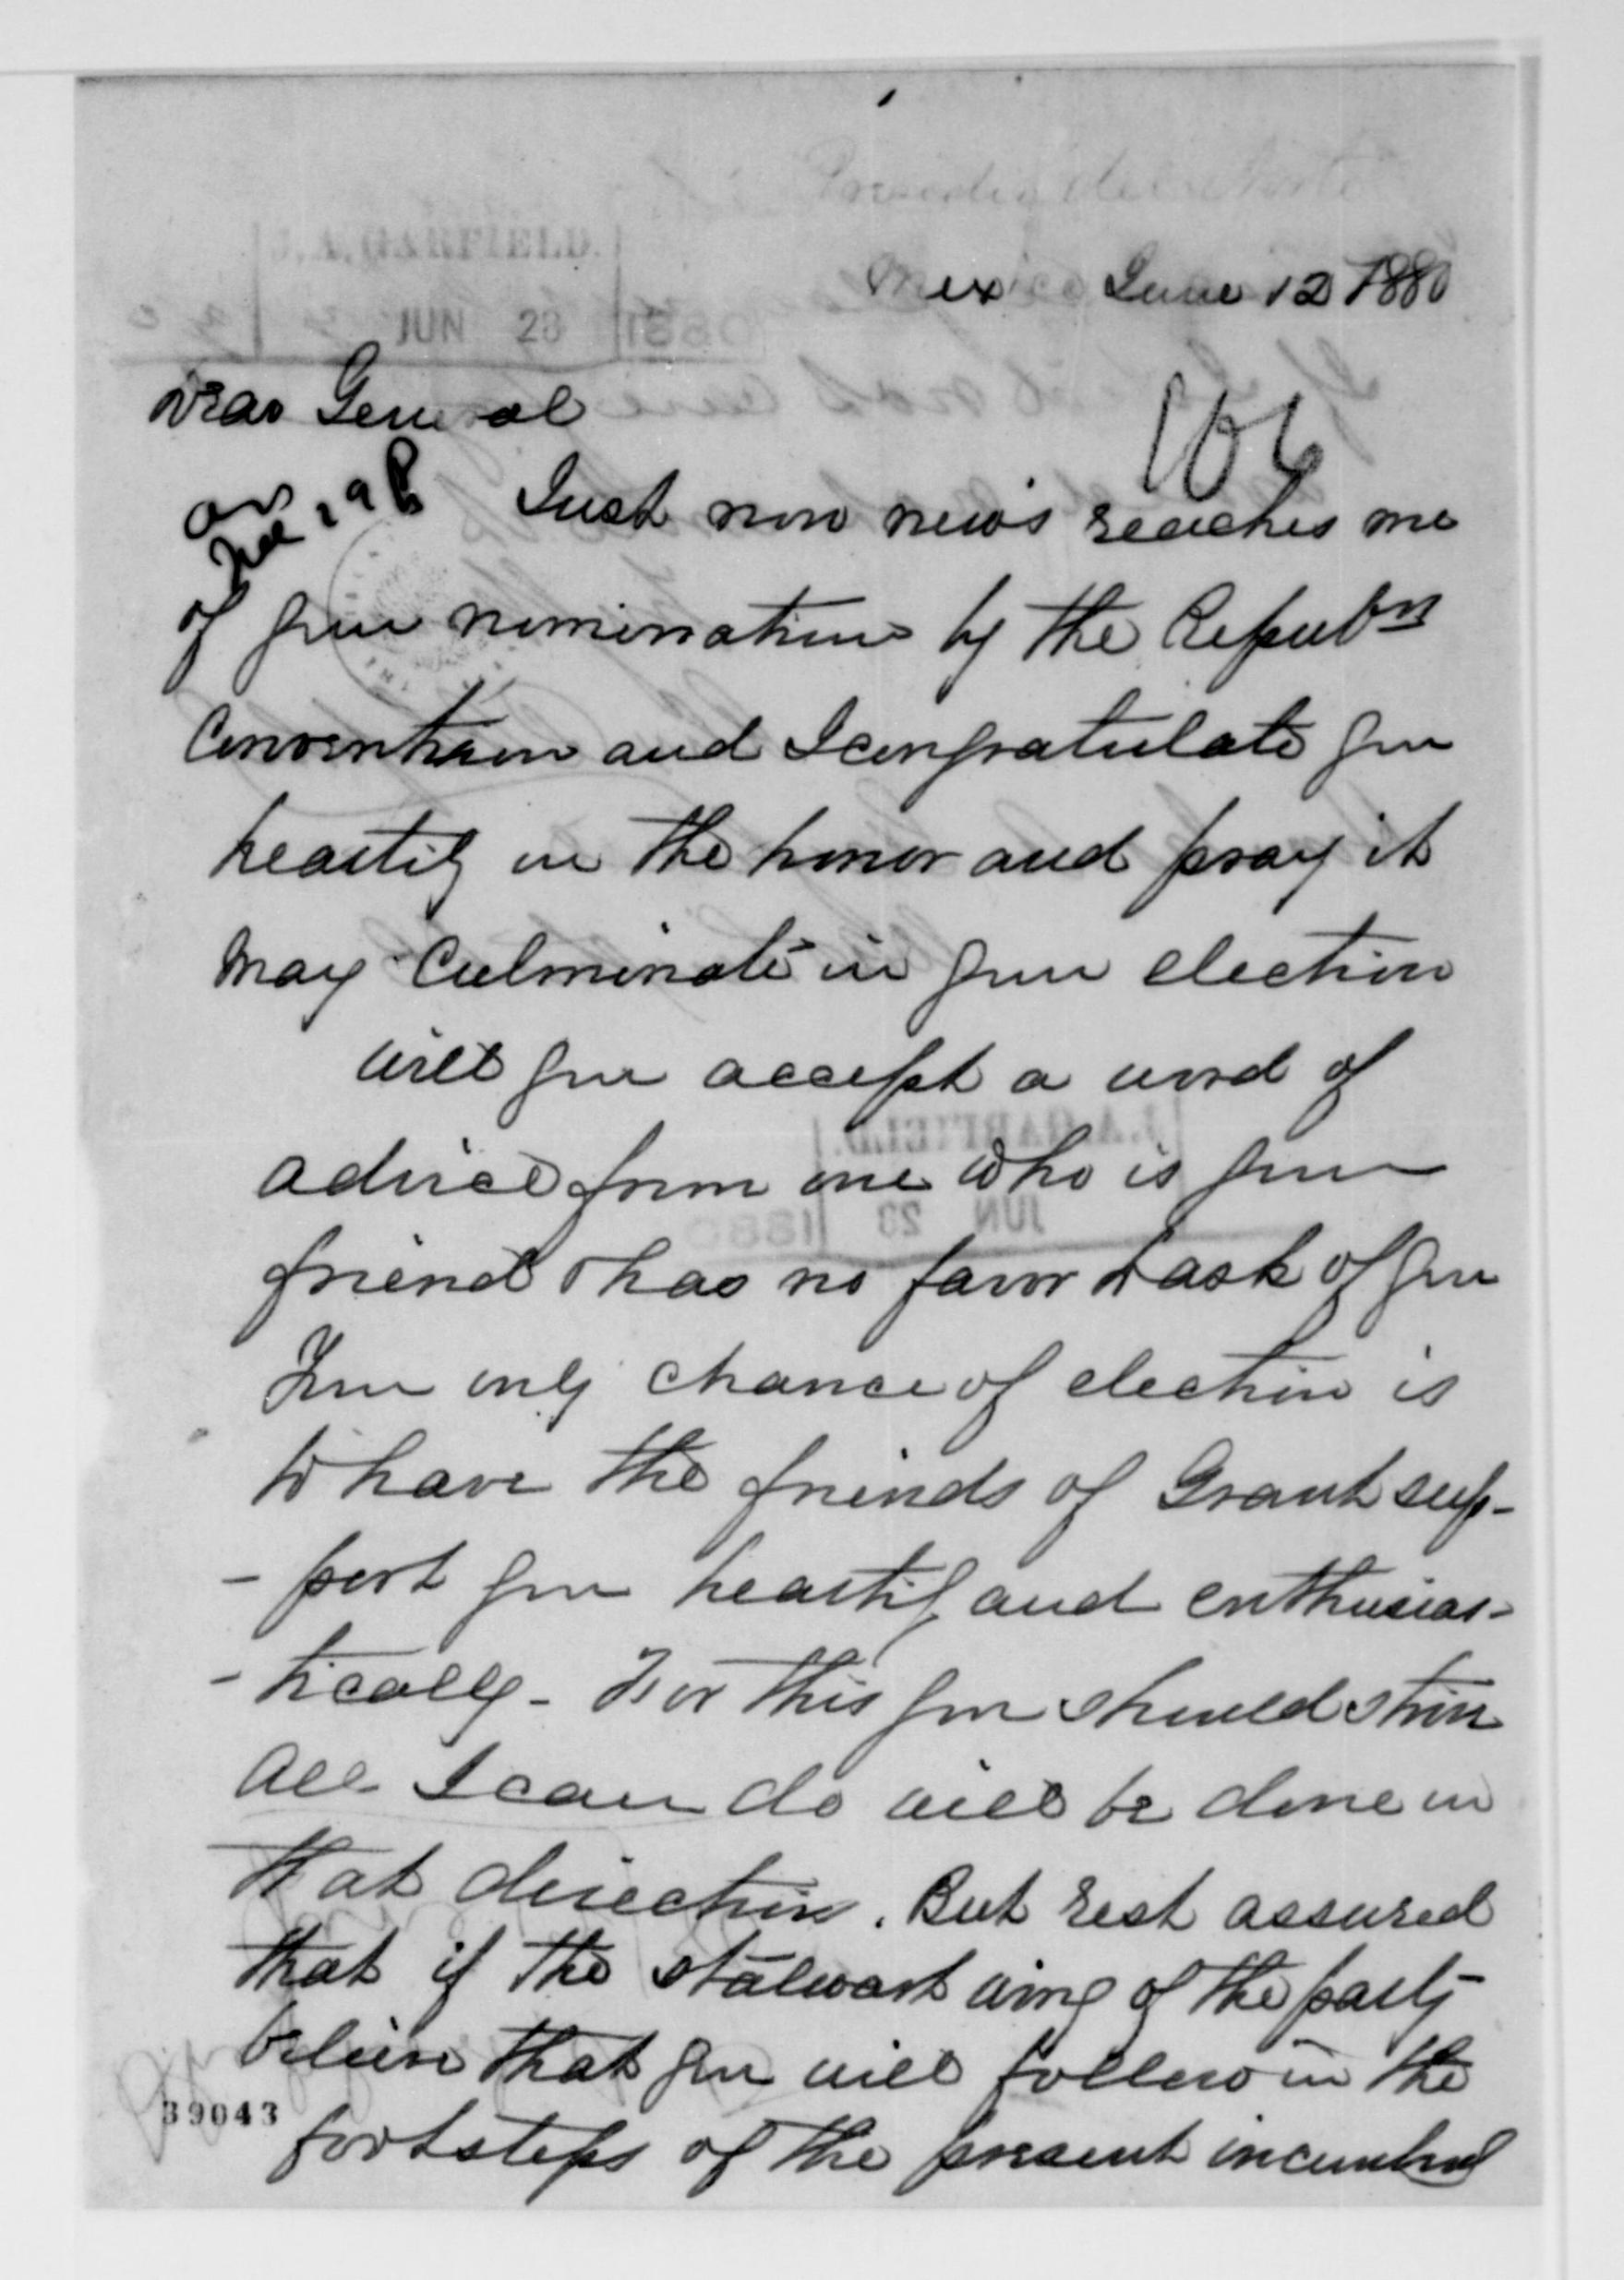 J. A. GARFIELD.
JUN 23 1880
Mexico June 12 1880
Dear General
106
Just now news reaches me
of your nomination by the Repubn
Convention and I congratulate you
heartily on the honor and pray it
may culminate in your election
Will you accept a word of
advice from one who is your
friend & has no favor to ask of you
Your only chance of election is
to have the friends of Grant sup-
-port you heartily and enthusias-
-tically - For this you should strive
All I can do will be done in
that direction. But rest assured
that if the stalwart wing of the party
believe that you will follow in the
39043
footsteps of the present incumbent